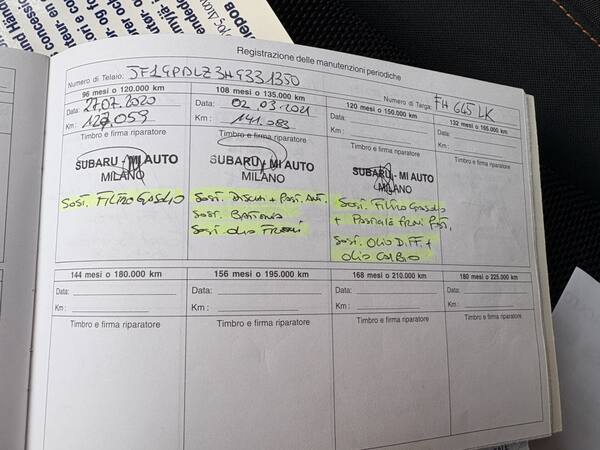 Registrazione delle manutenzioni periodiche
Numero di Telaio: JF1GPDLZ3HG331350
Numero di Targa: FH 645 LK
96 mesi o 120.000 km
Data: 27.07.2020
Km: 127.059
Timbro e firma riparatore
SUBARU - MI AUTO
MILANO
Sost. Filtro Gasolio
108 mesi o 135.000 km
Data: 02.03.2021
Km: 141.083
Timbro e firma riparatore
SUBARU - MI AUTO
MILANO
Sost. Dischi + Past. Ant.
Sost. Batteria
Sost. Olio Freni
120 mesi o 150.000 km
Data:
Km:
Timbro e firma riparatore
SUBARU - MI AUTO
MILANO
Sost. Filtro Gasolio
+ Pastiglie Freni Post.
Sost. Olio Diff. +
Olio Cambio
132 mesi o 165.000 km
Data:
Km:
Timbro e firma riparatore
144 mesi o 180.000 km
Data:
Km:
Timbro e firma riparatore
156 mesi o 195.000 km
Data:
Km:
Timbro e firma riparatore
168 mesi o 210.000 km
Data:
Km:
Timbro e firma riparatore
180 mesi o 225.000 km
Data:
Km:
Timbro e firma riparatore